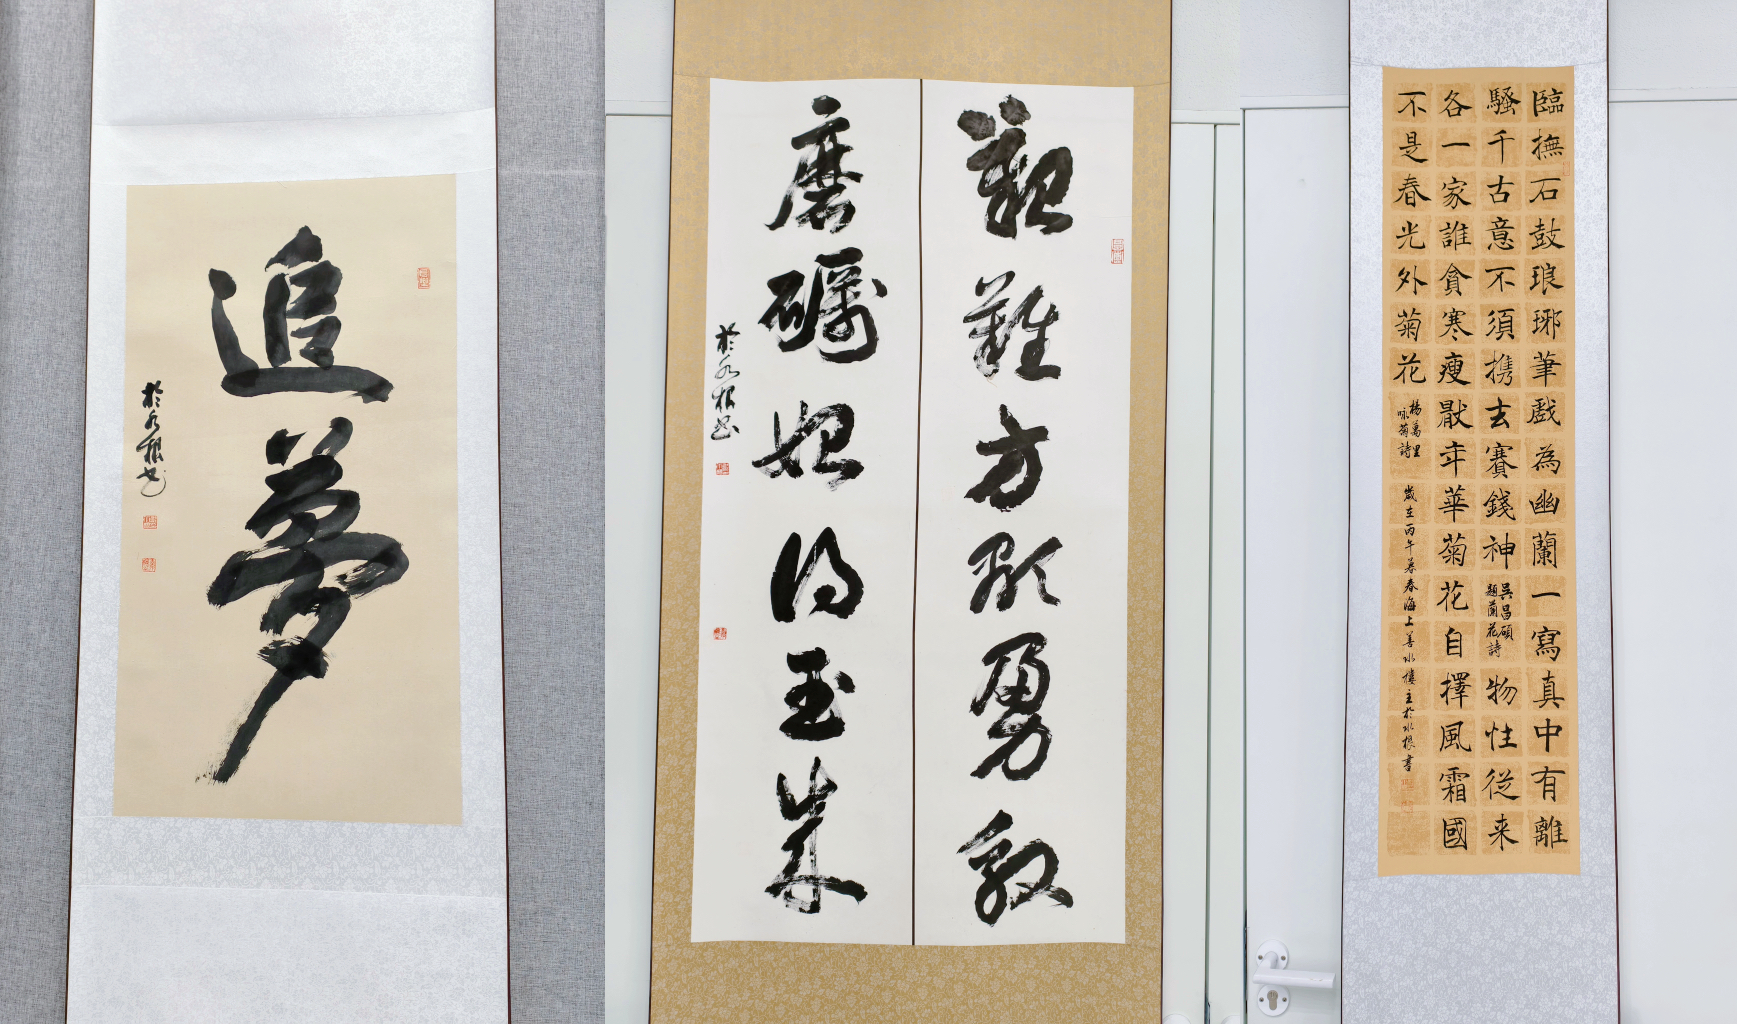 追夢
於水根書
艱難方顯勇毅
磨礪始得玉成
於水根書
臨撫石鼓琅琊筆戲為幽蘭一寫真中有離
騷千古意不須携去賽錢神
吳昌碩
題蘭花詩
物性從来
各一家誰貪寒瘦厭年華菊花自擇風霜國
不是春光外菊花
楊萬里
咏菊詩
歲在丙午暮春海上善水樓主於水根書